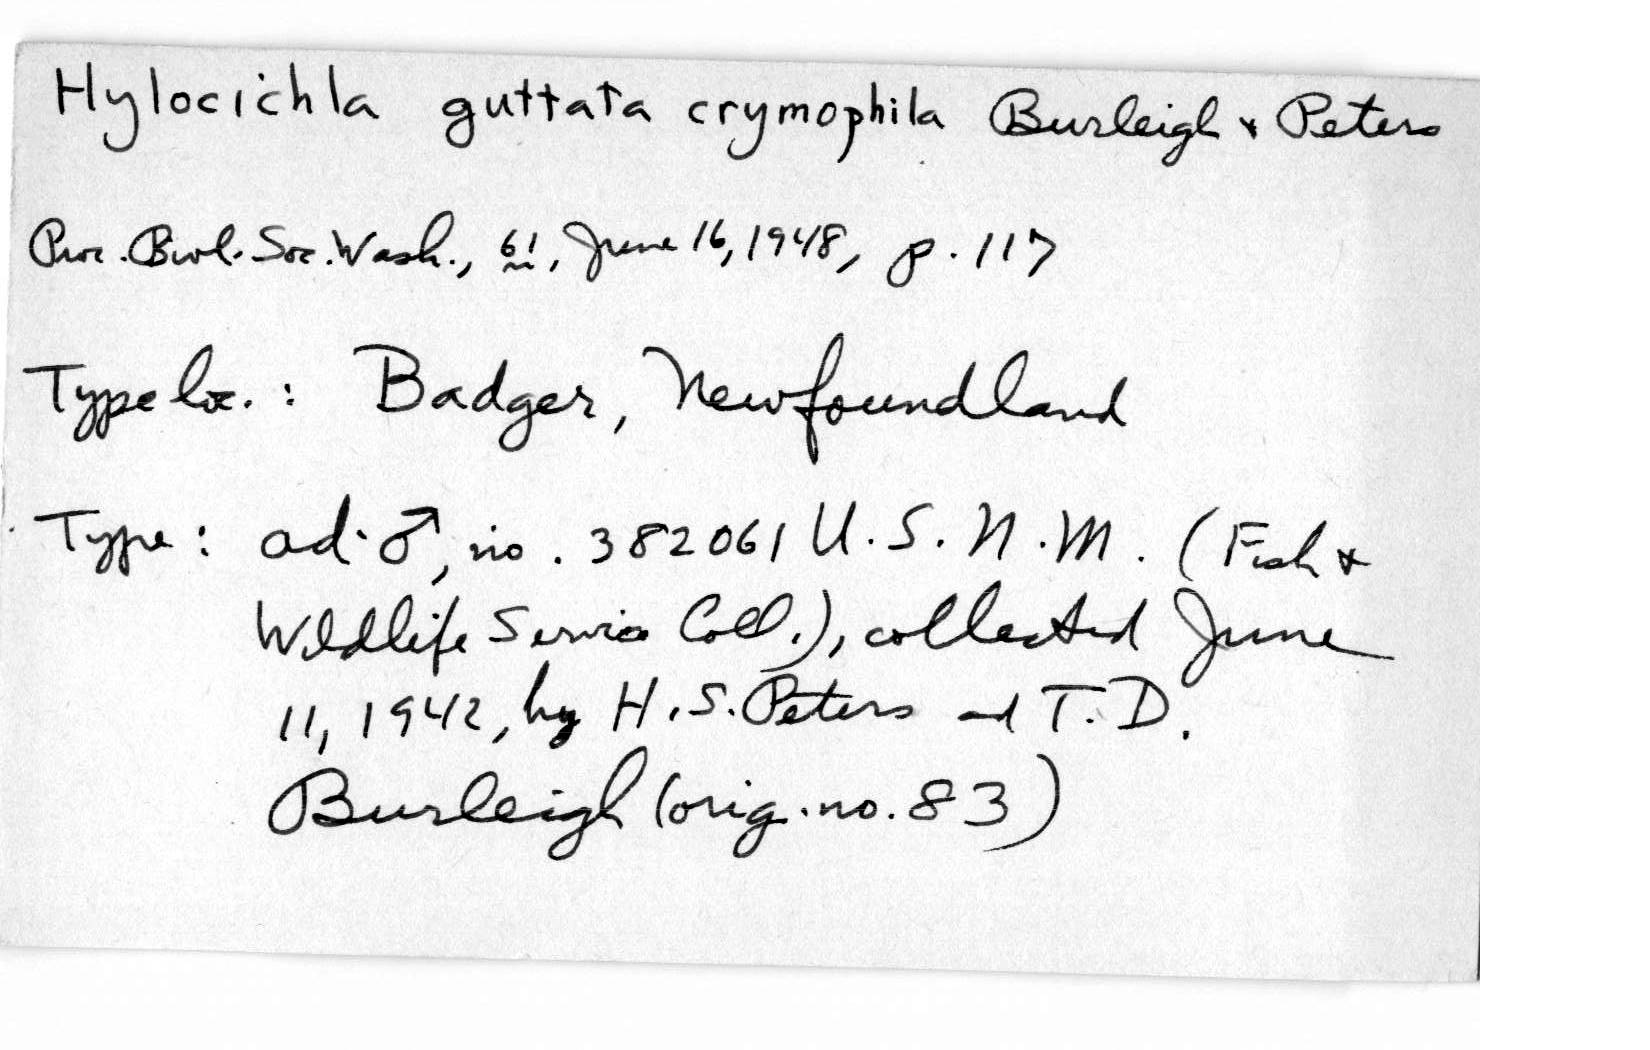 Hylocichla guttata crymophila Burleigh & Peters
Proc. Biol. Soc. Wash., 61, June 16, 1948, p. 117
Type loc. : Badger, Newfoundland
Type : ad. ♂, no. 382061 U.S.N.M. (Fish &
Wildlife Service Coll.), collected June
11, 1942, by H.S. Peters and T.D.
Burleigh (orig. no. 83)